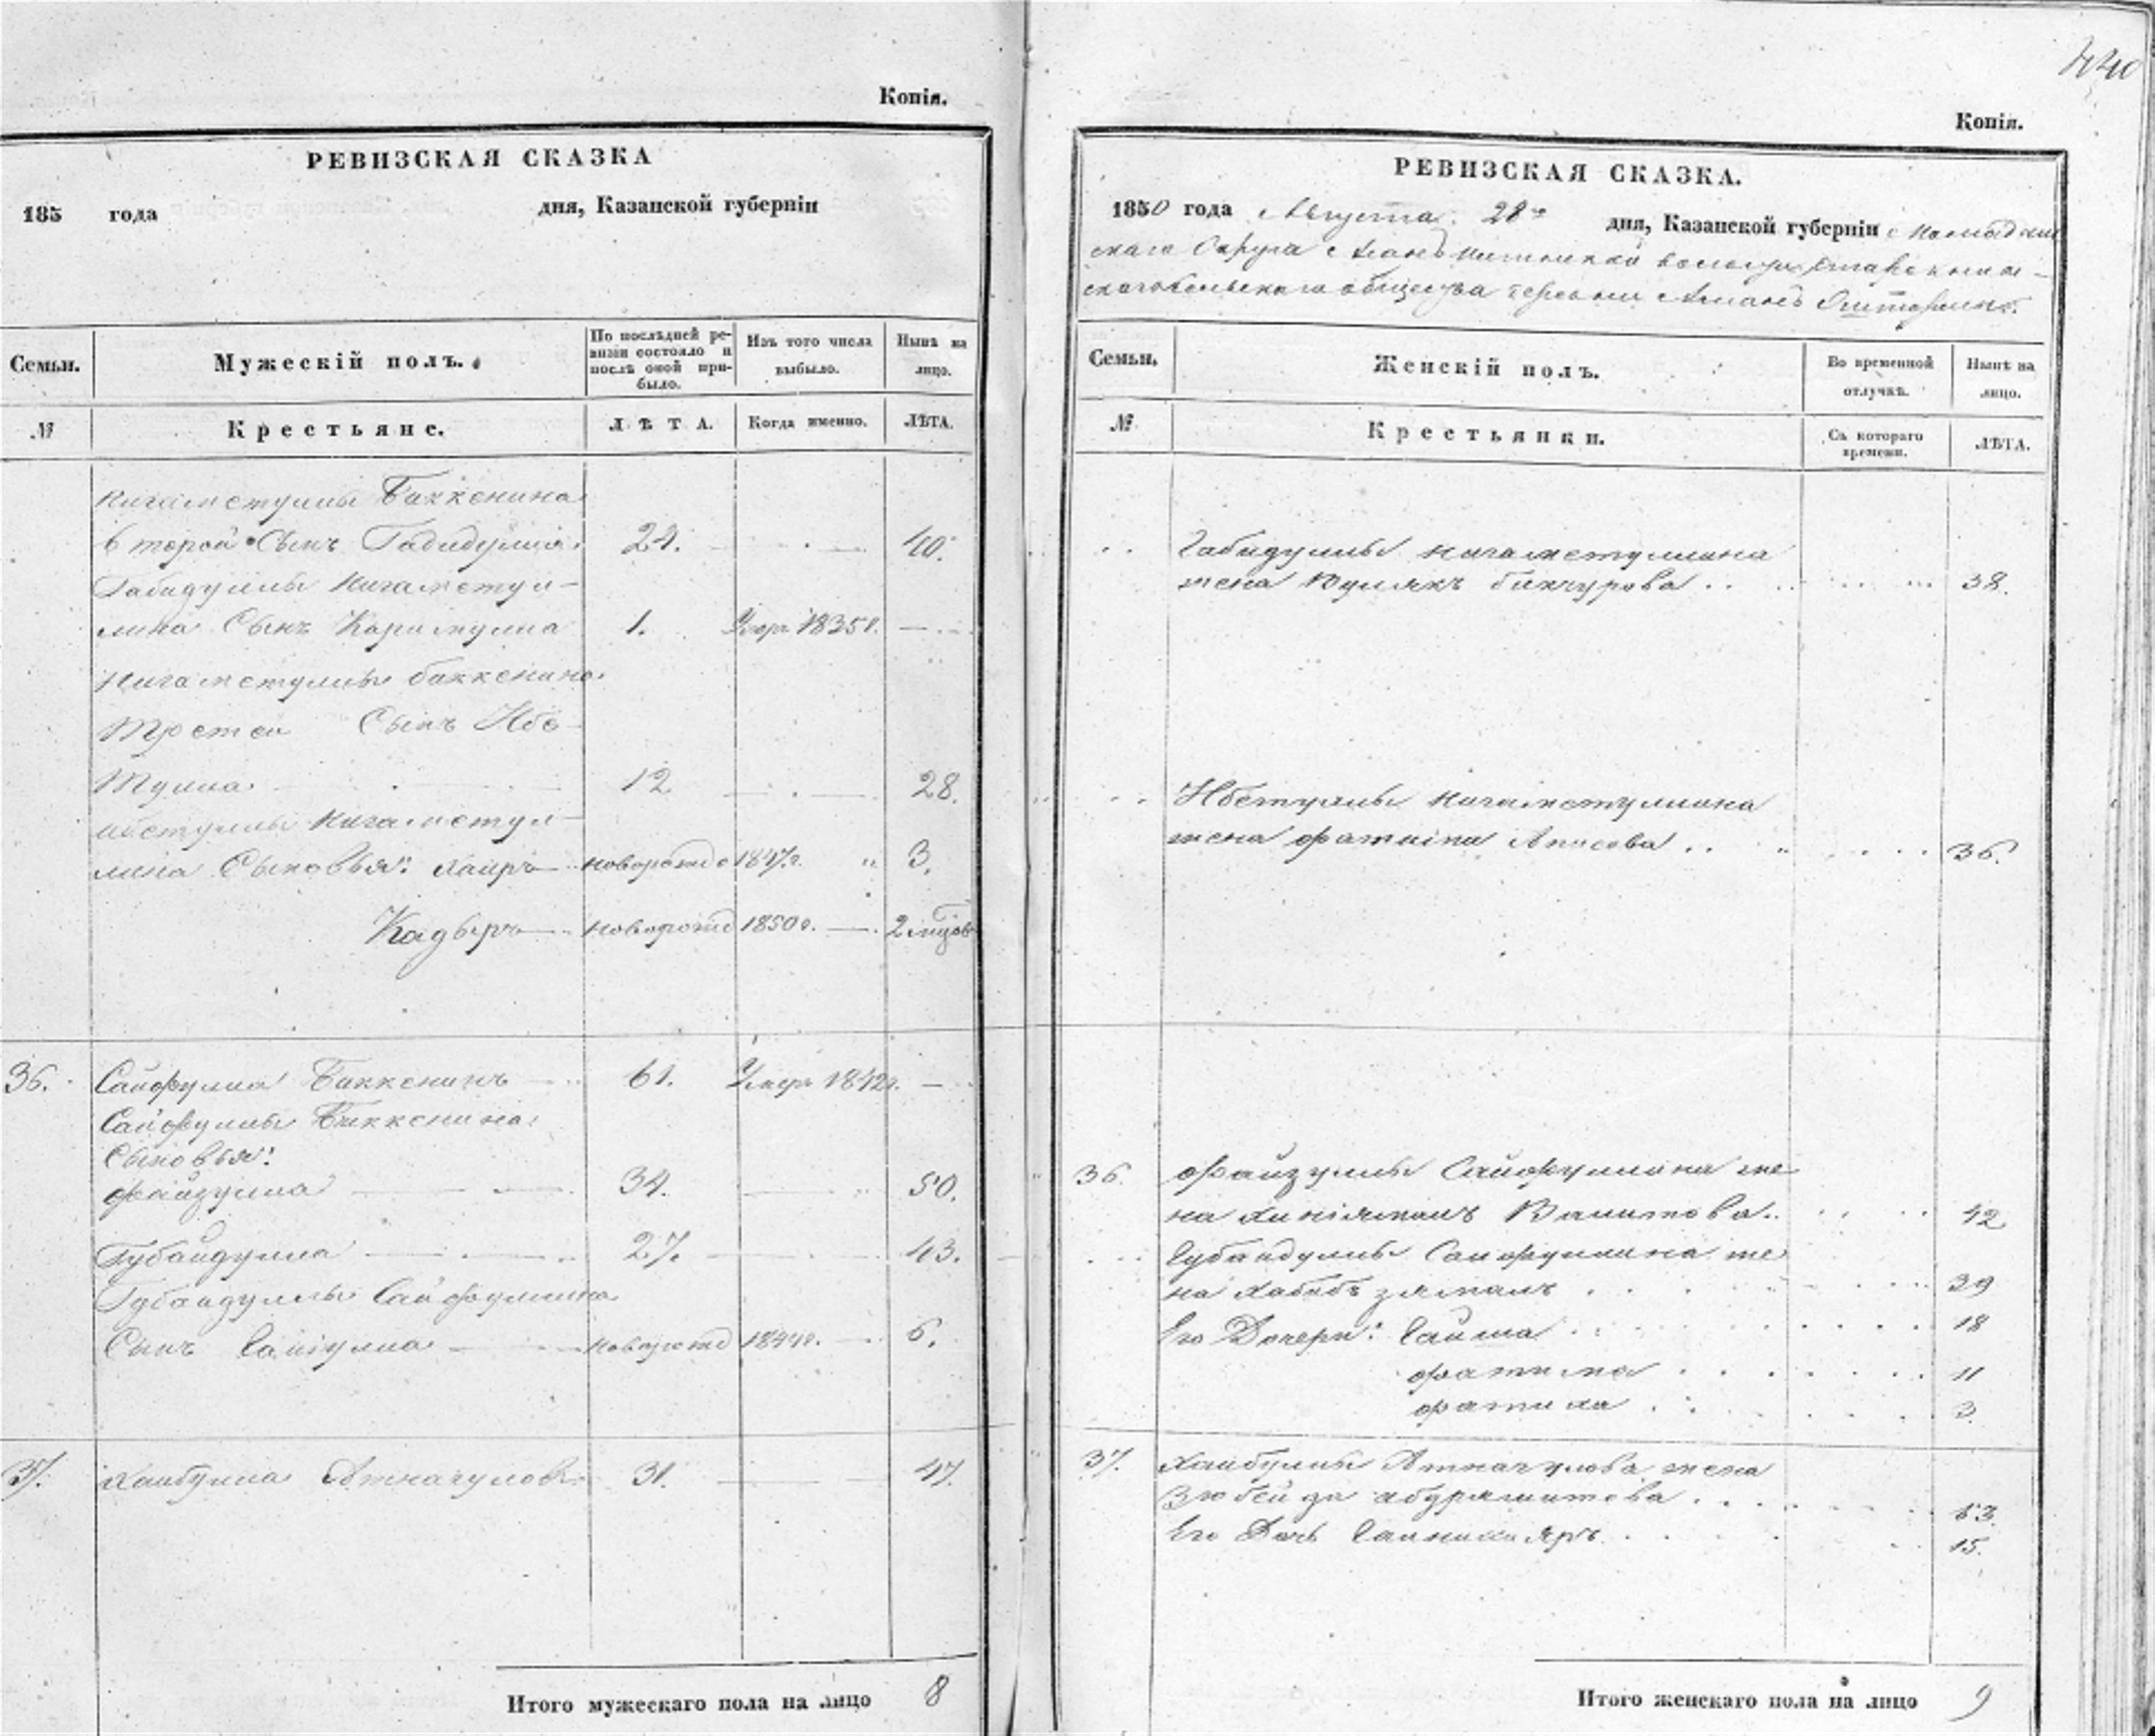 440
Копія.
РЕВИЗСКАЯ СКАЗКА
185 года дня, Казанской губерніи
Семьи.
Мужескій полъ.
По послѣдней ре-
визіи состояло и
послѣ оной при-
было.
Изъ того числа
выбыло.
Нынѣ на
лицо.
№
Крестьяне.
ЛѢТА.
Когда именно.
ЛѢТА.
Нигаметуллы Биккенина
второй Сынъ Габидулла 24. 40.
Габидуллы Нигаметул-
лина Сынъ Каримулла 1. Умеръ 1835г.
Нигаметуллы Биккенина
Третей Сынъ Ибе-
тулла 12. 28.
Ибетуллы Нигаметул-
лина Сыновья: Хаиръ новорожд 1847г. 3.
Кадыръ новорожд 1850г. 2 мѣцов
36. Сайфулла Биккенинъ 61. Умеръ 1842г.
Сайфуллы Биккенина
Сыновья:
Файзулла 34. 50.
Губайдулла 27. 43.
Губайдуллы Сайфуллина
Сынъ новорожд 1844г. 6.
37. Хаибулла Атначуловъ 31. 47.
Итого мужескаго пола на лицо 8
Копія.
РЕВИЗСКАЯ СКАЗКА.
1850 года Августа 28го дня, Казанской губерніи
скаго Округа волости
общества деревни
Семьи.
Женскій полъ.
Во временной
отлучкѣ.
Нынѣ на
лицо.
№
Крестьянки.
Съ котораго
времени.
ЛѢТА.
Габидуллы Нигаметуллина
жена Бикчурова 38.
Ибетуллы Нигаметуллина
жена 36.
36. Файзуллы Сайфуллина же
на Валитова 42
Губайдуллы Сайфуллина же
на Хабибъ зямалъ 39
Его Дочери: Гайша 18
Фатима 11
3
37. Хаибуллы Атначулова жена
Зюбейда Абдрашитова 53
Его Дочь 15.
Итого женскаго пола на лицо 9